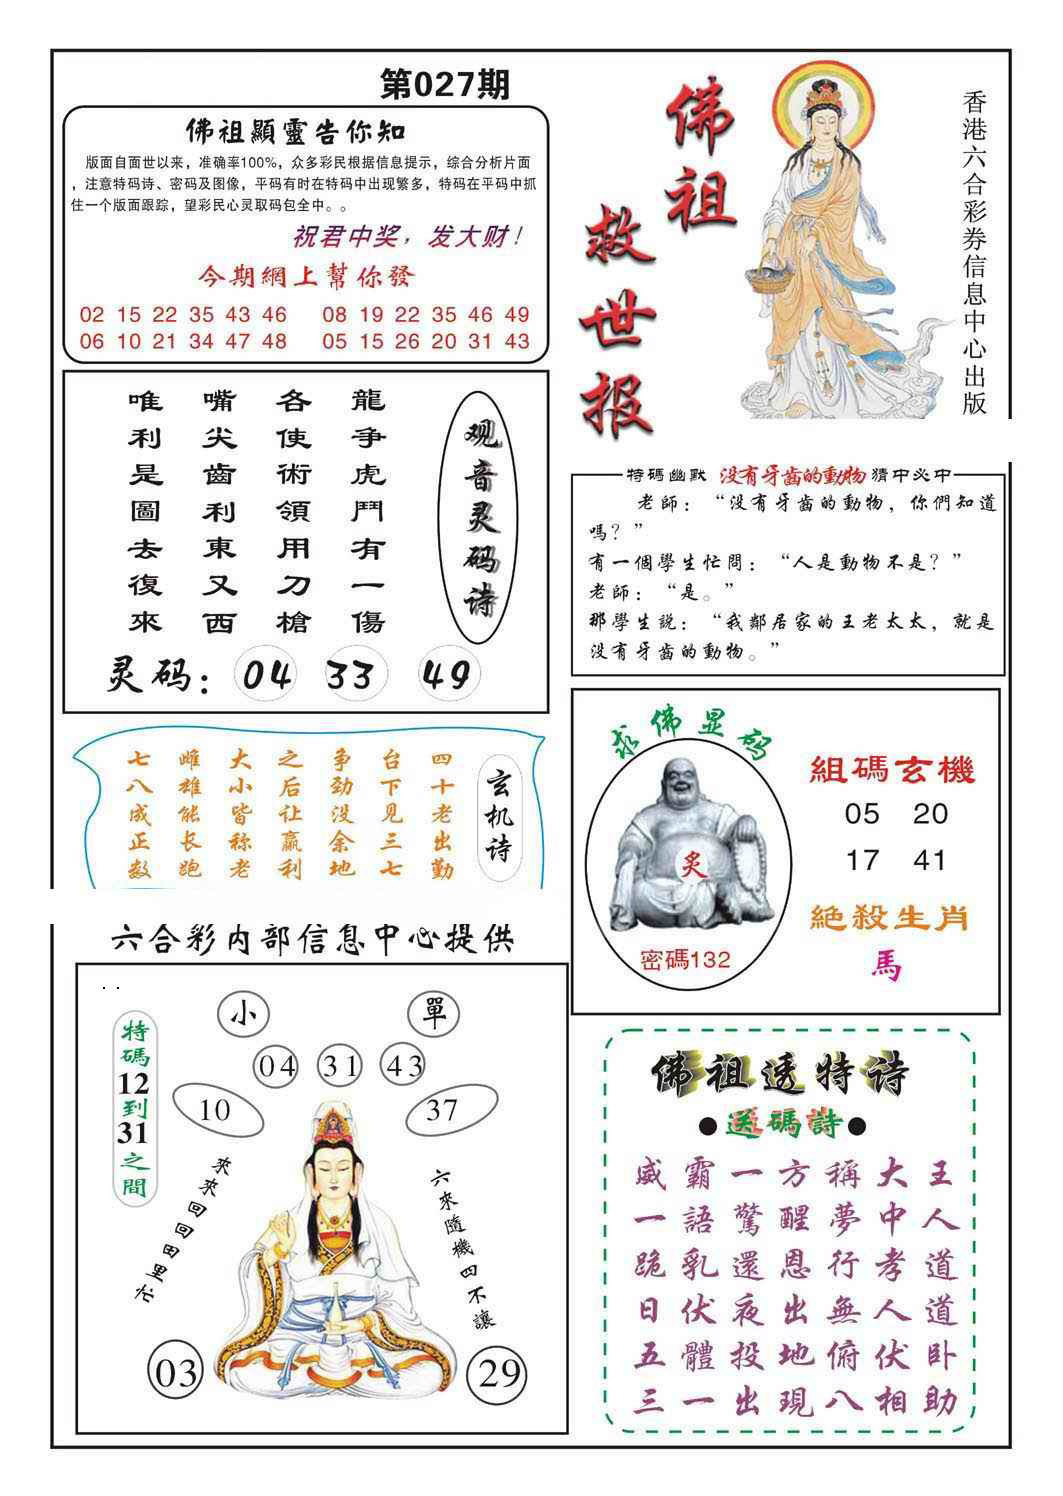 第027期
佛祖顯靈告你知
版面自面世以来，准确率100%，众多彩民根据信息提示，综合分析片面
，注意特码诗、密码及图像，平码有时在特码中出现繁多，特码在平码中抓
住一个版面跟踪，望彩民心灵取码包全中。。
祝君中奖，发大财！
今期網上幫你發
02 15 22 35 43 46 08 19 22 35 46 49
06 10 21 34 47 48 05 15 26 20 31 43
佛祖
救世报
香港六合彩券信息中心出版
观音灵码诗
龍争虎鬥有一傷
各使術領用刀槍
嘴尖齒利東又西
唯利是圖去復來
灵码： 04 33 49
特碼幽默 没有牙齒的動物 猜中必中
老師：“没有牙齒的動物，你們知道
嗎？”
有一個學生忙問：“人是動物不是？”
老師：“是。”
那學生説：“我鄰居家的王老太太，就是
没有牙齒的動物。”
玄机诗
四十老出勤
台下见三七
争劲没余地
之后让赢利
大小皆称老
雌雄能长跑
七八成正数
求佛显码
炙
密碼132
組碼玄機
05 20
17 41
絕殺生肖
馬
六合彩内部信息中心提供
特碼12到31之間
小 單
04 31 43
10 37
來來回回田里忙
六來隨機四不讓
03 29
佛祖透特诗
●送碼詩●
威霸一方稱大王
一語驚醒夢中人
跪乳還恩行孝道
日伏夜出無人道
五體投地俯伏卧
三一出現八相助